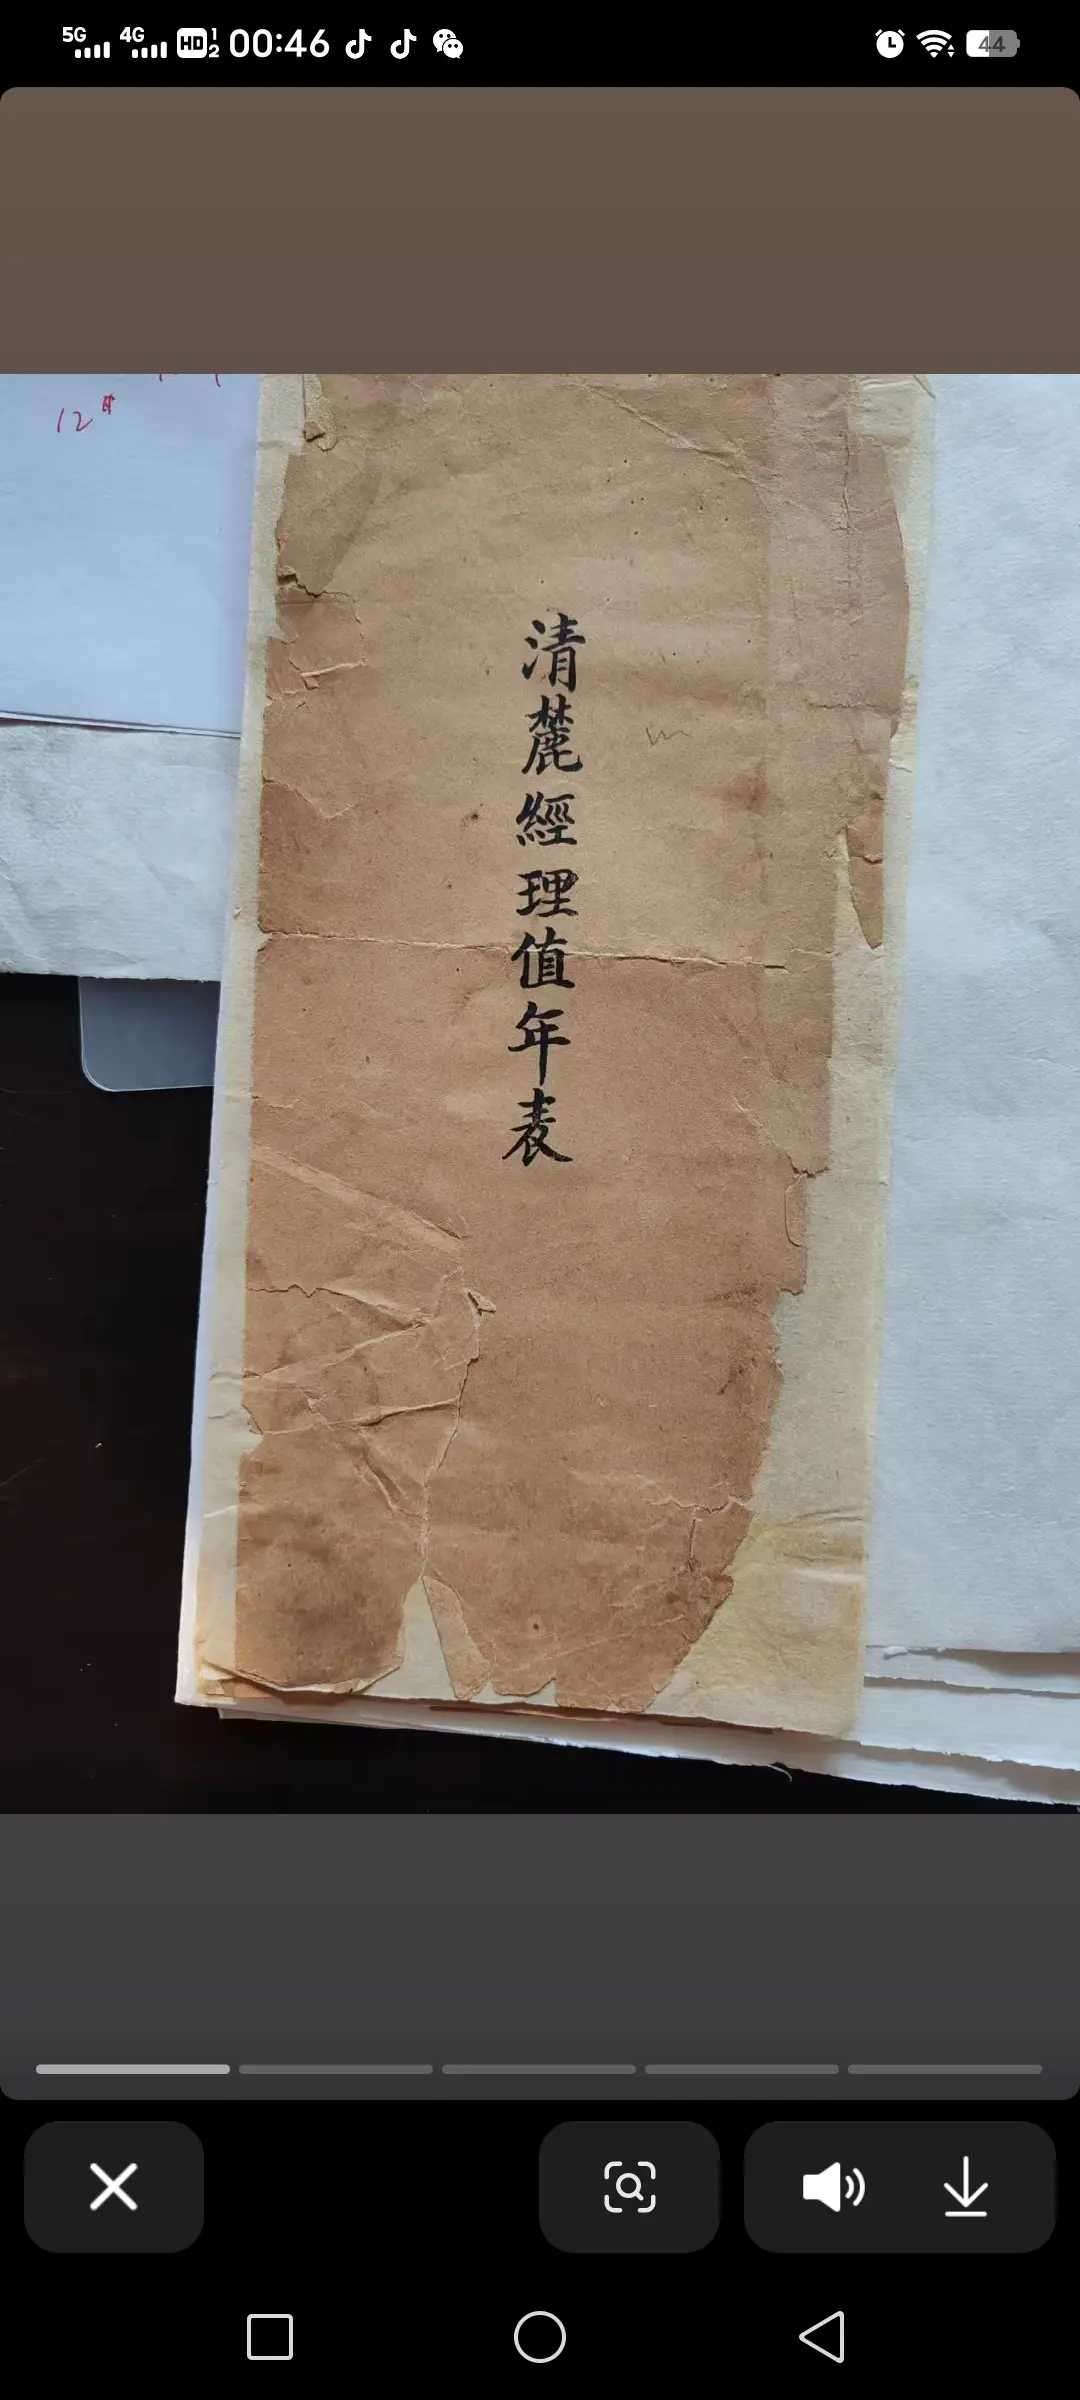 5G 4G HD 1 2 00:46 44
12
清麓經理值年表